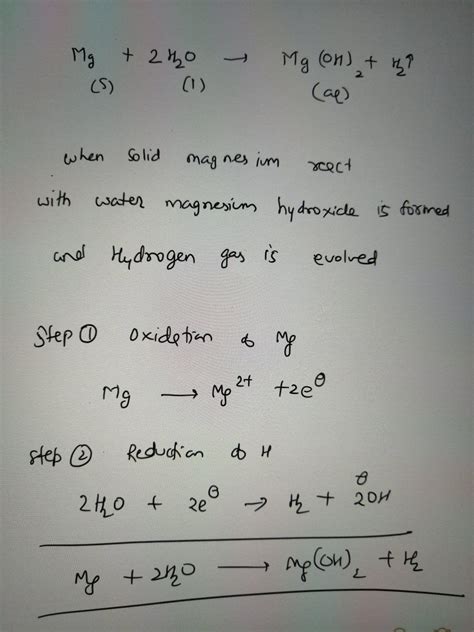 Mg + 2H₂O → Mg(OH)₂ + H₂↑
(s) (l) (aq)
when solid magnesium react
with water magnesium hydroxide is formed
and Hydrogen gas is evolved
Step ① Oxidation of Mg
Mg → Mg²⁺ + 2e⊖
Step ② Reduction of H
2H₂O + 2e⊖ → H₂ + 2OH⊖
Mg + 2H₂O → Mg(OH)₂ + H₂